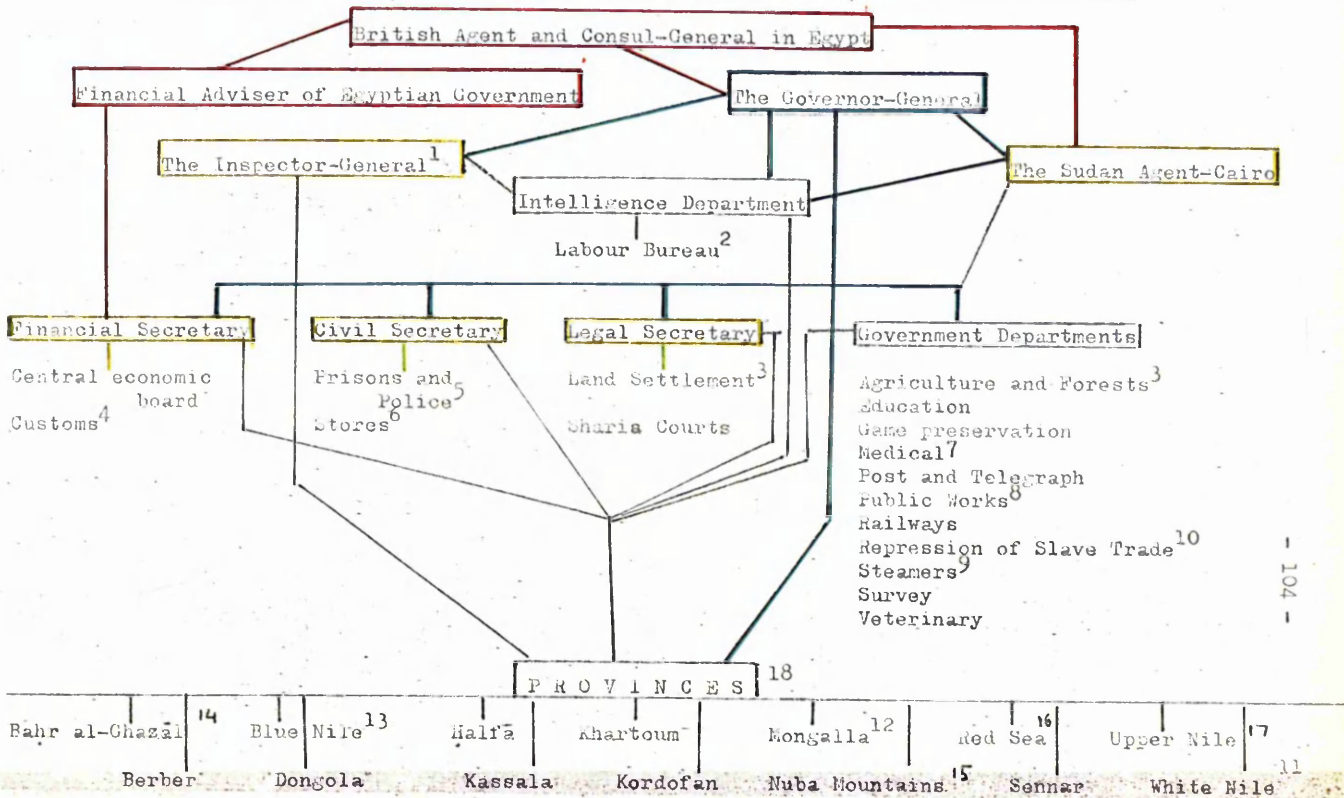 British Agent and Consul-General in Egypt
Financial Adviser of Egyptian Government
The Governor-General
The Inspector-General 1
The Sudan Agent-Cairo
Intelligence Department
Labour Bureau 2
Financial Secretary
Civil Secretary
Legal Secretary
Government Departments
Central economic
board
Customs 4
Prisons and
Police 5
Stores 6
Land Settlement 3
Sharia Courts
Agriculture and Forests 3
Education
Game preservation
Medical 7
Post and Telegraph
Public Works 8
Railways
Repression of Slave Trade 10
Steamers 9
Survey
Veterinary
- 104 -
PROVINCES 18
Bahr al-Ghazāl 14 Blue Nile 13 Halfā Khartoum Mongalla 12 Red Sea 16 Upper Nile 17
Berber Dongola Kassala Kordofan Nuba Mountains 15 Sennar White Nile 11